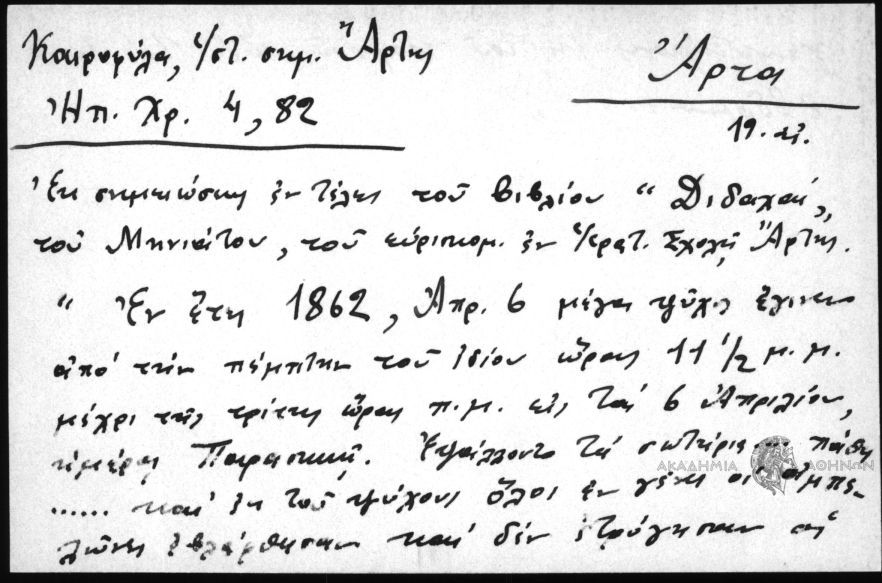 Καιροφύλα, ἱστ. σημ. Ἄρτης
Ἠπ. Χρ. 4, 82
Ἄρτα
19. αἰ.
Ἐκ σημειώσεως ἐν τέλει τοῦ βιβλίου "Διδαχαί,,
τοῦ Μηνιάτου, τοῦ εὑρισκομ. ἐν Σχολῇ Ἄρτης.
"Ἐν ἔτει 1862, Ἀπρ. 6 μέγα ψῦχος ἔγινεν
ἀπό τήν πέμπτην τοῦ ἰδίου ὥρας 11 1/2 μ.μ.
μέχρι τῆς τρίτης ὥρας π.μ. εἰς τάς 6 Ἀπριλίου,
ἡμέρα Παρασκευῇ. Ἐψάλλοντο τά σωτήρια.... πάθη
...... καί ἐκ τοῦ ψύχους ὅλοι ἐν γένει οἱ ἀμπε-
λῶνες ἐβλάφθησαν καί δέν ἐτρύγησαν
ΑΚΑΔΗΜΙΑ ΑΘΗΝΩΝ